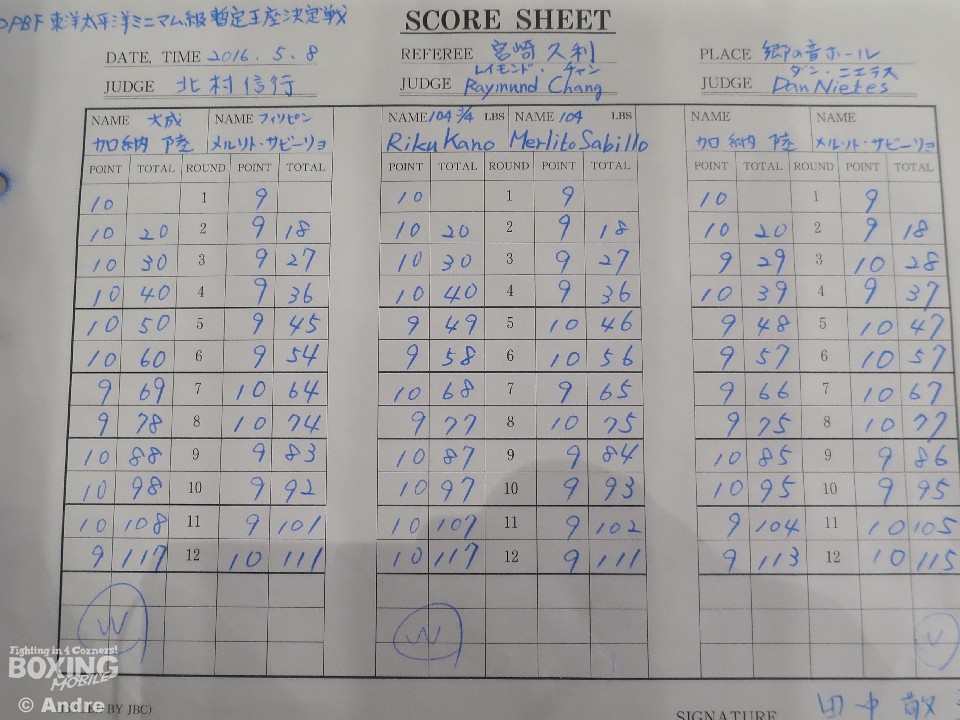 OPBF 東洋太平洋ミニマム級暫定王座決定戦
SCORE SHEET
DATE, TIME 2016. 5. 8 REFEREE 宮崎久利 PLACE 郷の音ホール
レイモンド・チャン ダン・ニエテス
JUDGE 北村信行 JUDGE Raymund Chang JUDGE Dan Nietes
NAME 大成 NAME フィリピン NAME 104 3/4 LBS NAME 104 LBS NAME NAME
加納 陸 メルリト・サビーリョ Riku Kano Merlito Sabillo 加納 陸 メルリト・サビーリョ
POINT TOTAL ROUND POINT TOTAL POINT TOTAL ROUND POINT TOTAL POINT TOTAL ROUND POINT TOTAL
10 1 9 10 1 9 10 1 9
10 20 2 9 18 10 20 2 9 18 10 20 2 9 18
10 30 3 9 27 10 30 3 9 27 9 29 3 10 28
10 40 4 9 36 10 40 4 9 36 10 39 4 9 37
10 50 5 9 45 9 49 5 10 46 9 48 5 10 47
10 60 6 9 54 9 58 6 10 56 9 57 6 10 57
9 69 7 10 64 10 68 7 9 65 9 66 7 10 67
9 78 8 10 74 9 77 8 10 75 9 75 8 10 77
10 88 9 9 83 10 87 9 9 84 10 85 9 9 86
10 98 10 9 92 10 97 10 9 93 10 95 10 9 95
10 108 11 9 101 10 107 11 9 102 9 104 11 10 105
9 117 12 10 111 10 117 12 9 111 9 113 12 10 115
W W W
Fighting in 4 Corners!
BOXING
MOBILE
© Andre
BY JBC) SIGNATURE 田中敬